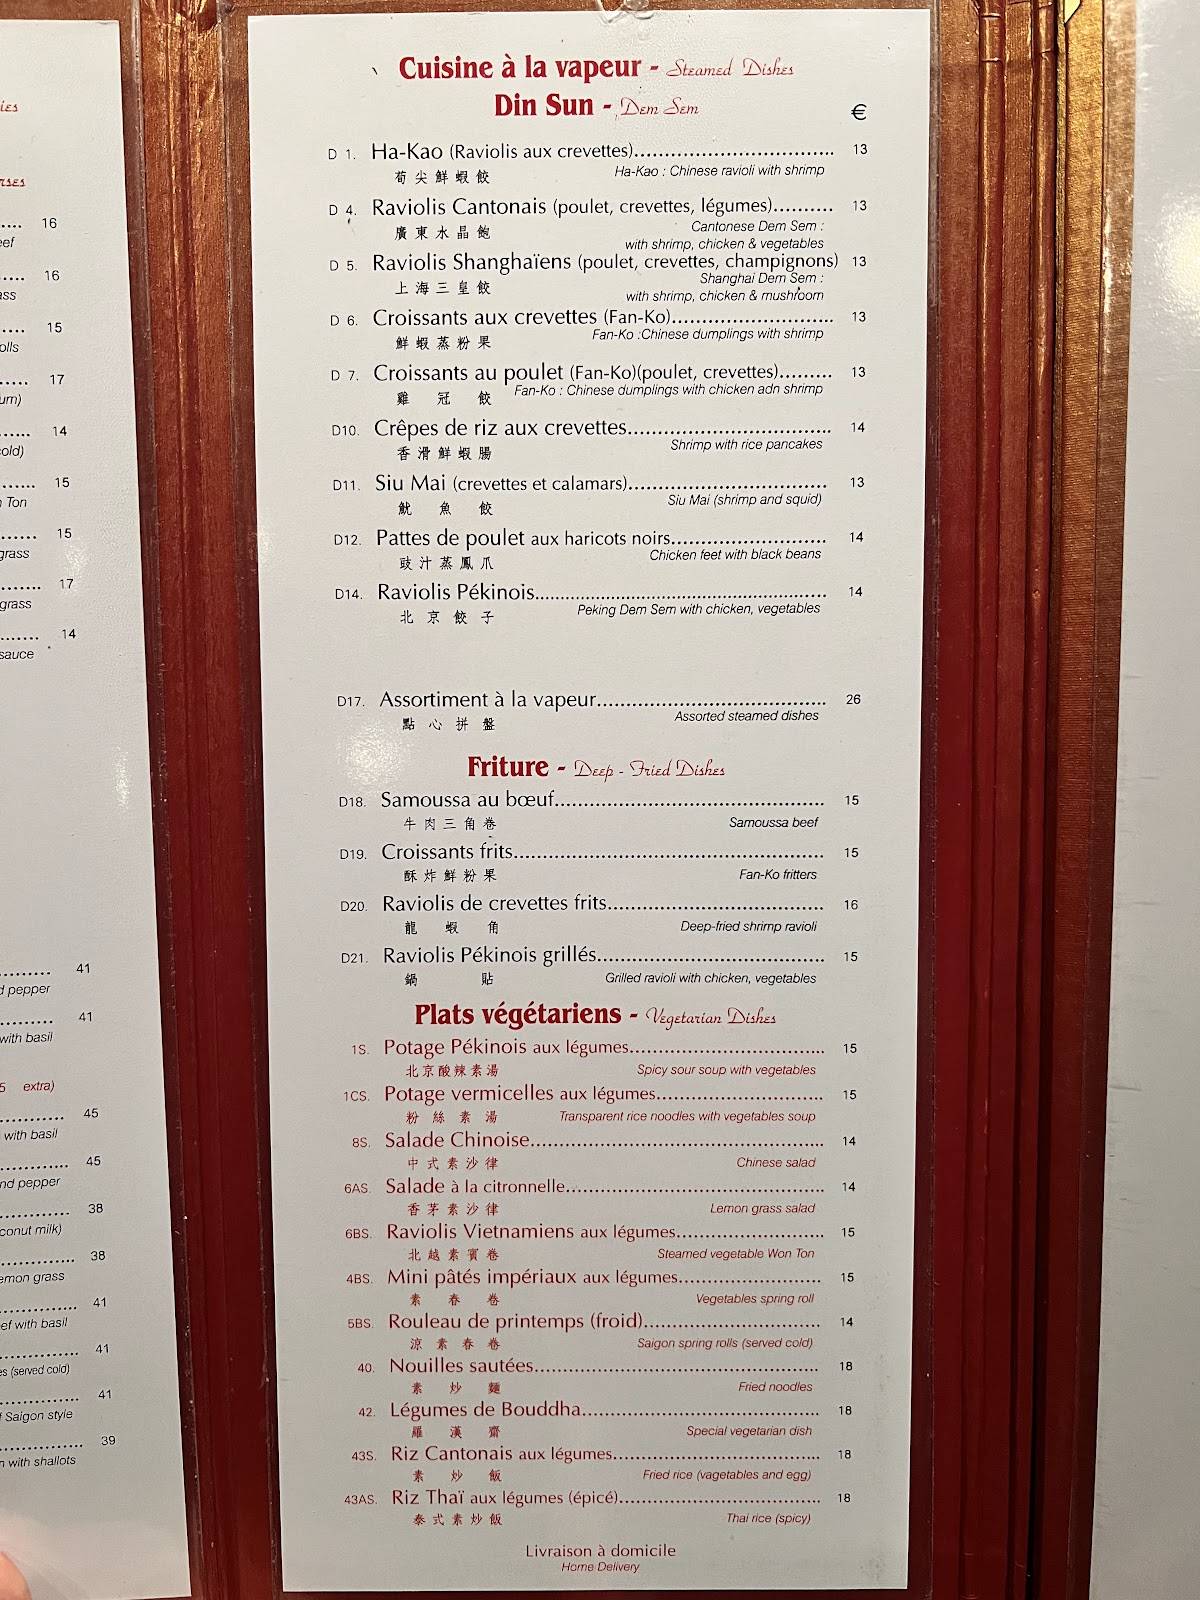 ies
rses
..... 16
eef
.... 16
ass
.... 15
olls
..... 17
urn)
...... 14
cold)
....... 15
n Ton
....... 15
grass
........ 17
grass
....... 14
sauce
......... 41
d pepper
......... 41
with basil
5 extra)
........... 45
with basil
............ 45
nd pepper
............ 38
conut milk)
............. 38
emon grass
............. 41
ef with basil
.............. 41
es (served cold)
.............. 41
f Saigon style
............... 39
n with shallots
Cuisine à la vapeur - Steamed Dishes
Din Sun - Dem Sem
€
D 1. Ha-Kao (Raviolis aux crevettes)................................. 13
筍尖鮮蝦餃 Ha-Kao : Chinese ravioli with shrimp
D 4. Raviolis Cantonais (poulet, crevettes, légumes).......... 13
廣東水晶飽 Cantonese Dem Sem :
with shrimp, chicken & vegetables
D 5. Raviolis Shanghaïens (poulet, crevettes, champignons) 13
上海三皇餃 Shanghai Dem Sem :
with shrimp, chicken & mushroom
D 6. Croissants aux crevettes (Fan-Ko)........................... 13
鮮蝦蒸粉果 Fan-Ko :Chinese dumplings with shrimp
D 7. Croissants au poulet (Fan-Ko)(poulet, crevettes)......... 13
雞冠餃 Fan-Ko : Chinese dumplings with chicken adn shrimp
D10. Crêpes de riz aux crevettes.................................. 14
香滑鮮蝦腸 Shrimp with rice pancakes
D11. Siu Mai (crevettes et calamars)................................. 13
魷魚餃 Siu Mai (shrimp and squid)
D12. Pattes de poulet aux haricots noirs.......................... 14
豉汁蒸鳳爪 Chicken feet with black beans
D14. Raviolis Pékinois.................................................. 14
北京餃子 Peking Dem Sem with chicken, vegetables
D17. Assortiment à la vapeur....................................... 26
點心拼盤 Assorted steamed dishes
Friture - Deep - Fried Dishes
D18. Samoussa au bœuf.............................................. 15
牛肉三角卷 Samoussa beef
D19. Croissants frits..................................................... 15
酥炸鮮粉果 Fan-Ko fritters
D20. Raviolis de crevettes frits..................................... 16
龍蝦角 Deep-fried shrimp ravioli
D21. Raviolis Pékinois grillés....................................... 15
鍋貼 Grilled ravioli with chicken, vegetables
Plats végétariens - Vegetarian Dishes
1S. Potage Pékinois aux légumes................................. 15
北京酸辣素湯 Spicy sour soup with vegetables
1CS. Potage vermicelles aux légumes............................ 15
粉絲素湯 Transparent rice noodles with vegetables soup
8S. Salade Chinoise.................................................. 14
中式素沙律 Chinese salad
6AS. Salade à la citronnelle............................................ 14
香茅素沙律 Lemon grass salad
6BS. Raviolis Vietnamiens aux légumes......................... 15
北越素賓卷 Steamed vegetable Won Ton
4BS. Mini pâtés impériaux aux légumes........................ 15
素春卷 Vegetables spring roll
5BS. Rouleau de printemps (froid).............................. 14
涼素春卷 Saigon spring rolls (served cold)
40. Nouilles sautées................................................. 18
素炒麵 Fried noodles
42. Légumes de Bouddha......................................... 18
羅漢齋 Special vegetarian dish
43S. Riz Cantonais aux légumes................................... 18
素炒飯 Fried rice (vagetables and egg)
43AS. Riz Thaï aux légumes (épicé).................................. 18
泰式素炒飯 Thai rice (spicy)
Livraison à domicile
Home Delivery